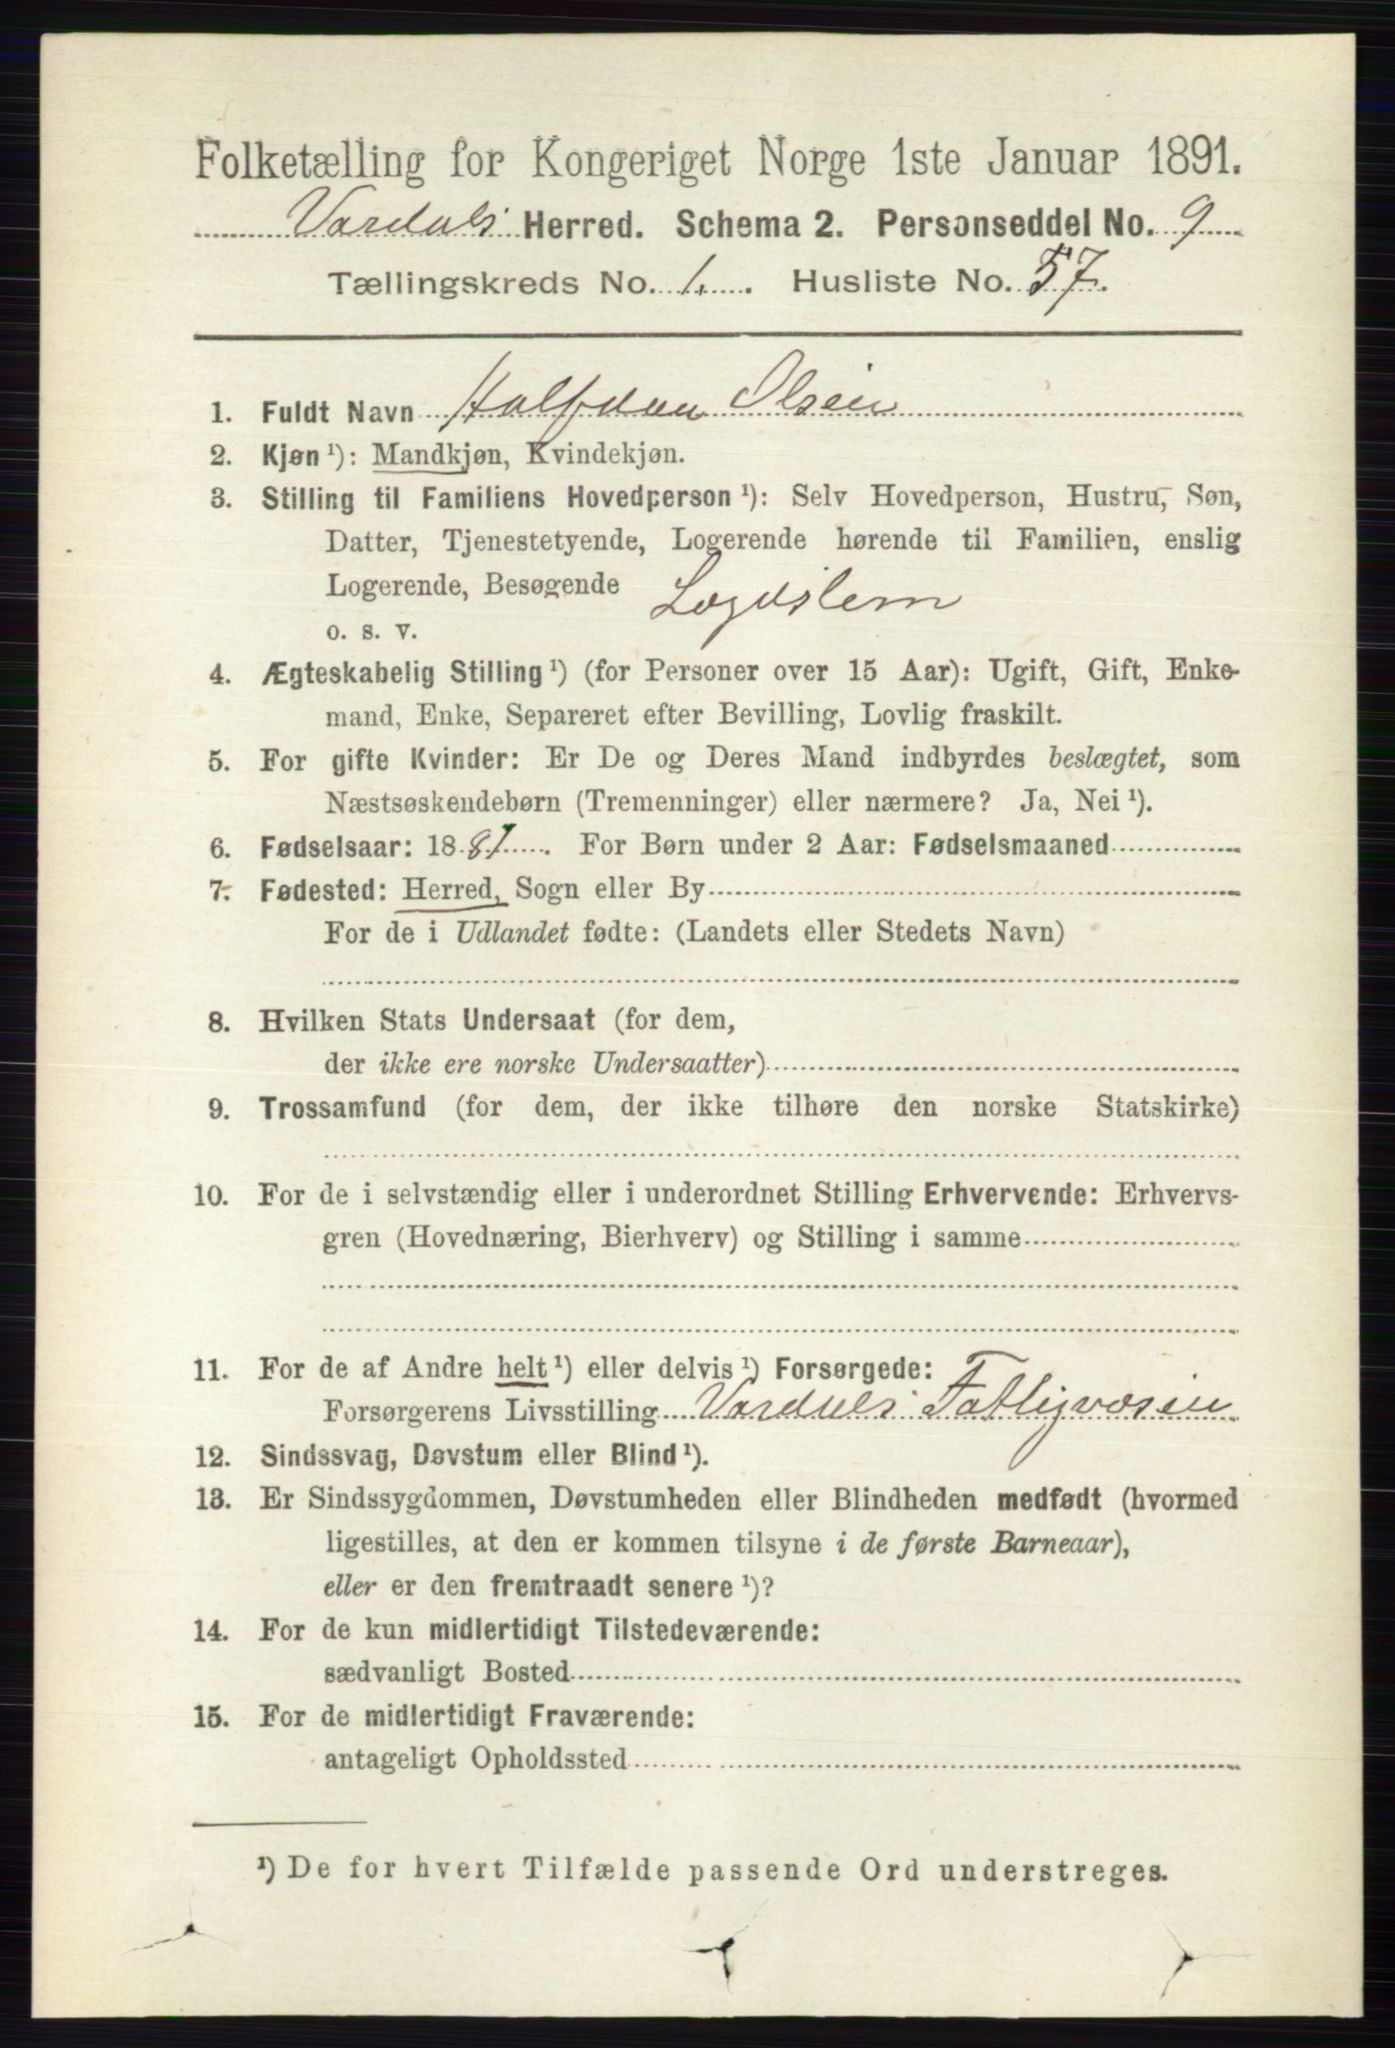 Folketælling for Kongeriget Norge 1ste Januar 1891.
Vardals Herred. Schema 2. Personseddel No. 9
Tællingskreds No. 1. Husliste No. 57.
1. Fuldt Navn Halfdan Olsen
2. Kjøn ¹): Mandkjøn, Kvindekjøn.
3. Stilling til Familiens Hovedperson ¹): Selv Hovedperson, Hustru, Søn,
Datter, Tjenestetyende, Logerende hørende til Familien, enslig
Logerende, Besøgende Lægdslem
o. s. v.
4. Ægteskabelig Stilling ¹) (for Personer over 15 Aar): Ugift, Gift, Enke-
mand, Enke, Separeret efter Bevilling, Lovlig fraskilt.
5. For gifte Kvinder: Er De og Deres Mand indbyrdes beslægtet, som
Næstsøskendebørn (Tremenninger) eller nærmere? Ja, Nei ¹).
6. Fødselsaar: 1887. For Børn under 2 Aar: Fødselsmaaned
7. Fødested: Herred, Sogn eller By
For de i Udlandet fødte: (Landets eller Stedets Navn)
8. Hvilken Stats Undersaat (for dem,
der ikke ere norske Undersaatter)
9. Trossamfund (for dem, der ikke tilhøre den norske Statskirke)
10. For de i selvstændig eller i underordnet Stilling Erhvervende: Erhvervs-
gren (Hovednæring, Bierhverv) og Stilling i samme
11. For de af Andre helt ¹) eller delvis ¹) Forsørgede:
Forsørgerens Livsstilling Vardals Fattigvæsen
12. Sindssvag, Døvstum eller Blind ¹).
13. Er Sindssygdommen, Døvstumheden eller Blindheden medfødt (hvormed
ligestilles, at den er kommen tilsyne i de første Barneaar),
eller er den fremtraadt senere ¹)?
14. For de kun midlertidigt Tilstedeværende:
sædvanligt Bosted
15. For de midlertidigt Fraværende:
antageligt Opholdssted
¹) De for hvert Tilfælde passende Ord understreges.